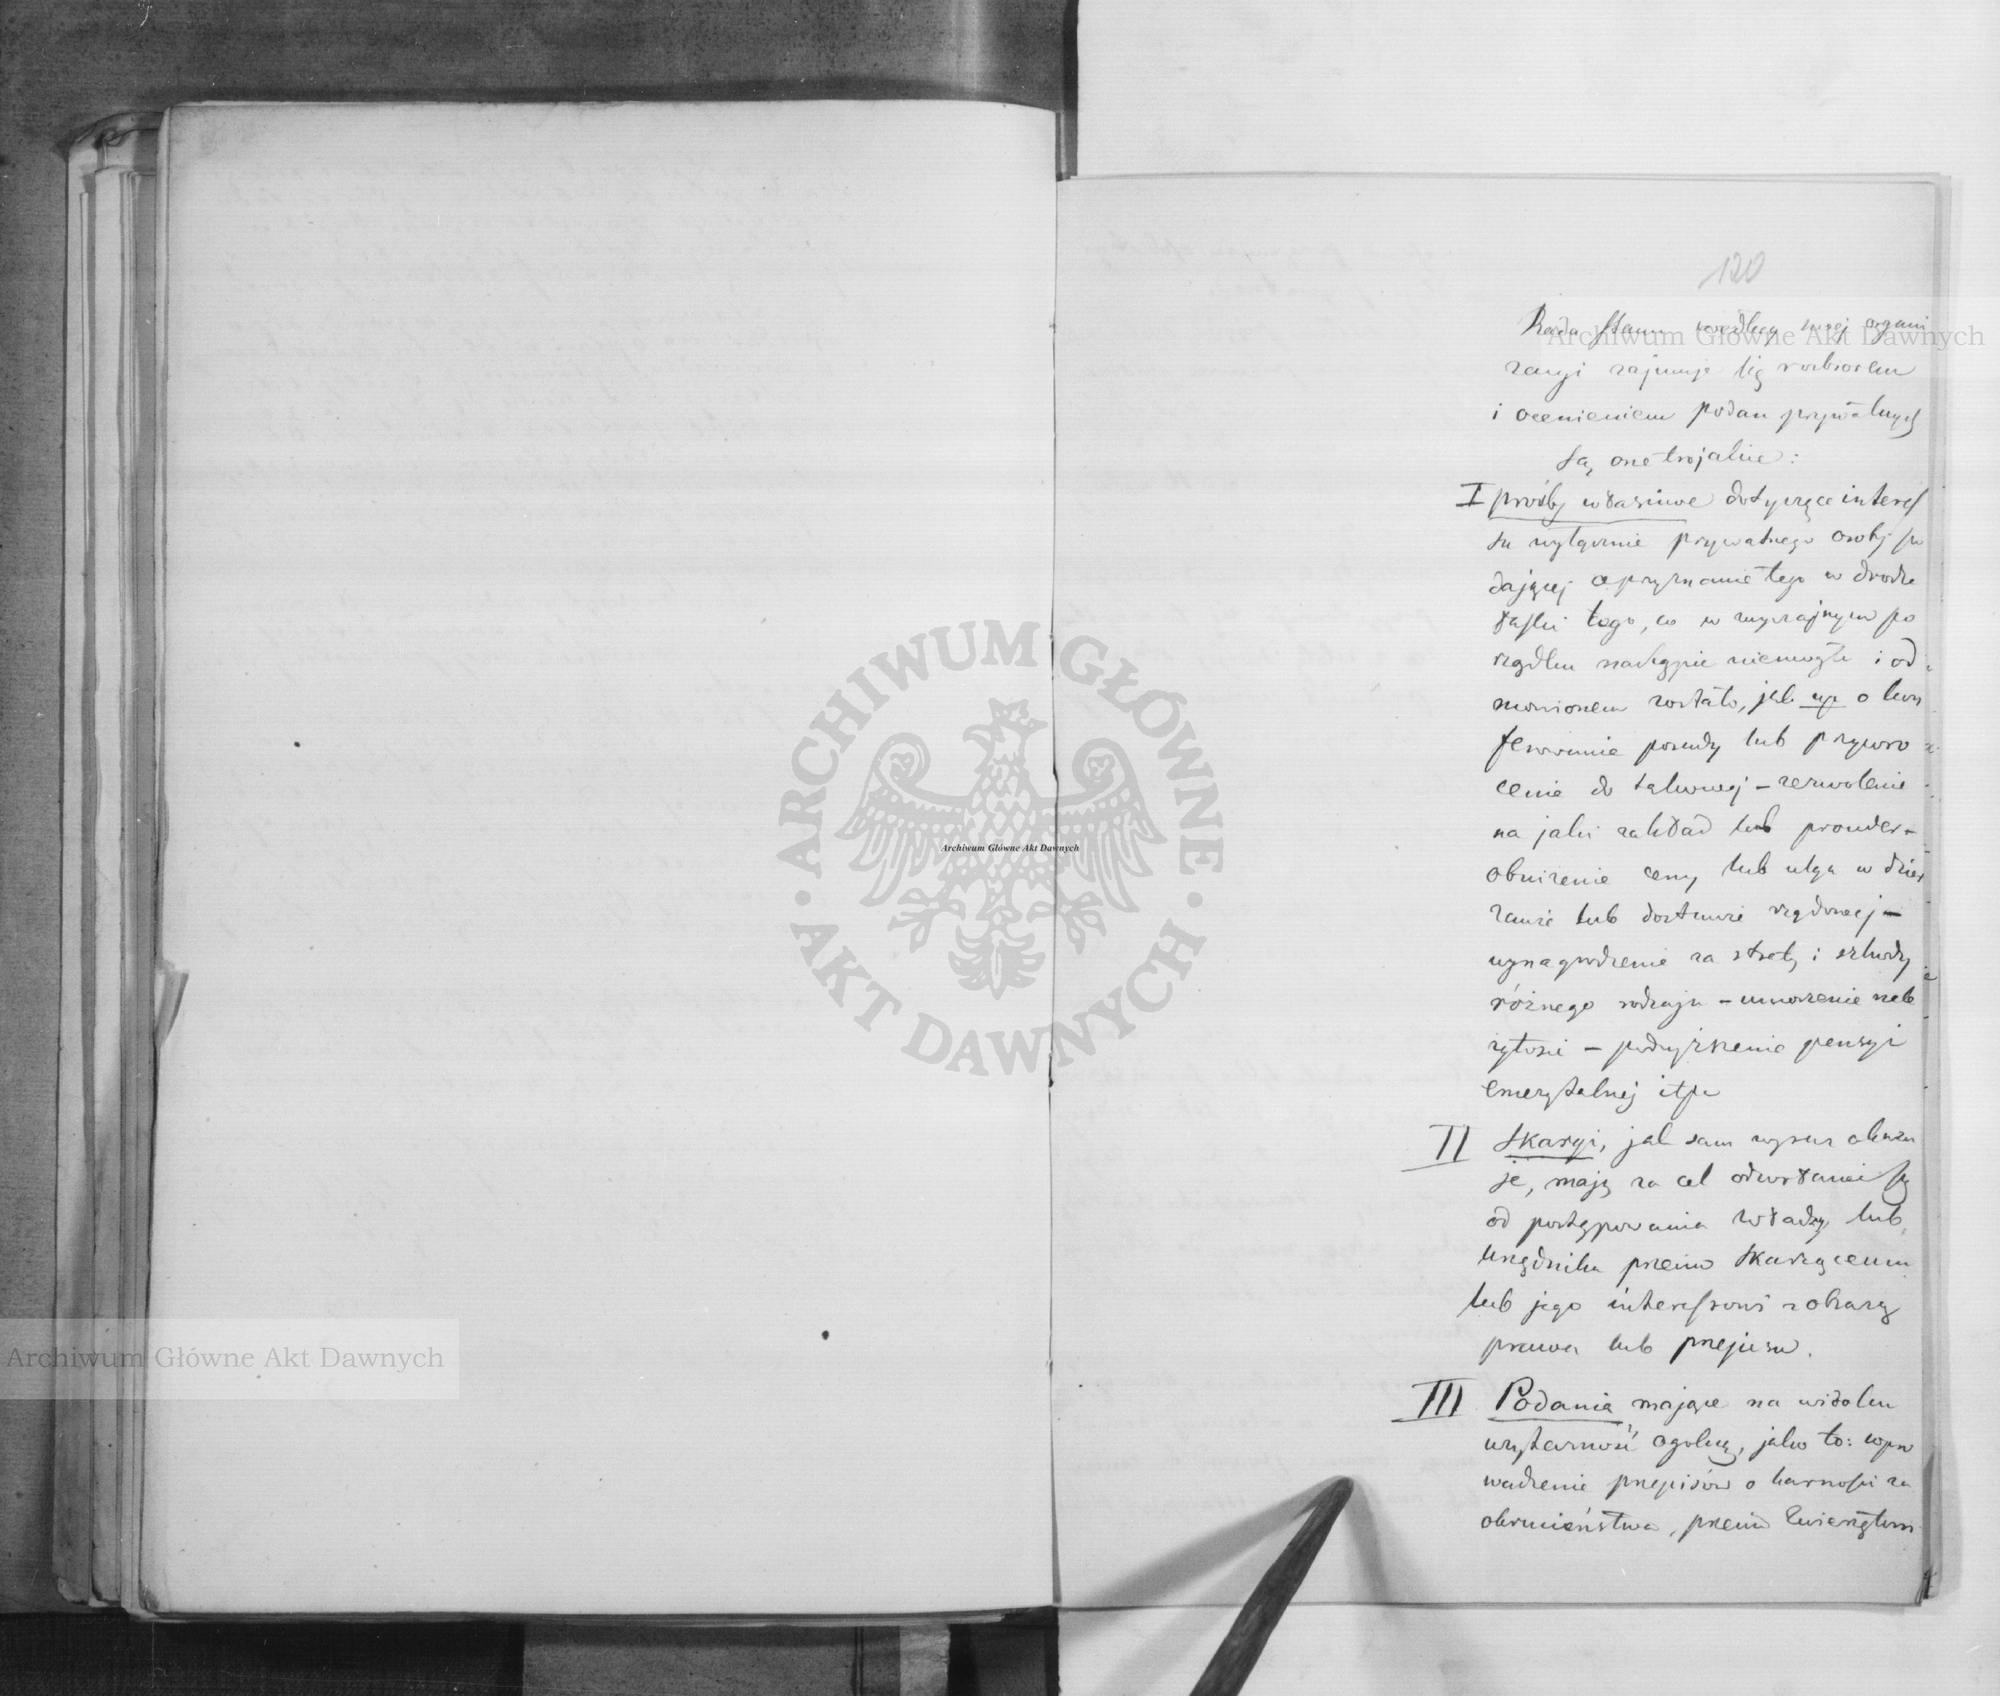 120
Rada Stanu według swej organi
zacyi zajmuje się rozbiorem
i ocenieniem podań prywatnych
Są one trojakie:
I prośby właściwe dotyczące interes
su wyłącznie prywatnego osoby po
dającej o przyznanie tego w drodze
łaski tego, co w zwyczajnym po
rządku nastąpić niemogło i od
mówionem zostało, jak np o kon
ferowanie posady lub przywró
cenie do takowej – zezwolenie
na jaki zakład lub proceder –
obniżenie ceny lub ulga w dzier
żawie lub dostawie rządowej –
wynagrodzenie za straty i szkody
różnego rodzaju – umorzenie nale
żytości – podwyższenie pensyi
emerytalnej itp
II Skargi, jak sam wyraz okazu
je, mają za cel odwołanie się
od postępowania władzy lub
urzędnika przeciw skarżącemu
lub jego interesowi z obrazą
prawa lub przepisu.
III Podania mające na widoku
użyteczność ogólną, jako to: wpro
wadzenie przepisów o karności za
okrucieństwa, przeciw zwierzętom
Archiwum Główne Akt Dawnych
ARCHIWUM GŁÓWNE AKT DAWNYCH
Archiwum Główne Akt Dawnych
Archiwum Główne Akt Dawnych